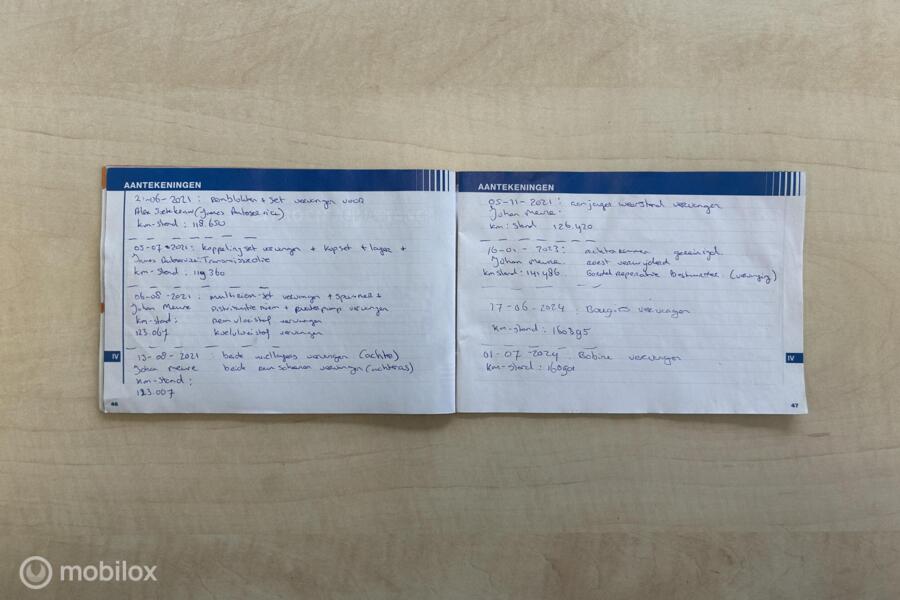 AANTEKENINGEN
21-06-2021: remblokken + set vervangen voor
Alex (James Autoservice)
km-stand: 118.650
03-07-2021: Koppelingset vervangen + Kupset + lager +
James Autoservice Transmissieolie
km-stand: 119360
06-08-2021: multiriem-set vervangen + spanner +
Johan Meure Distributieriem + waterpomp vervangen
km-stand: remvloeistof vervangen
123.067 koelvloeistof vervangen
13-08-2021 beide wiellagers vervangen (achter)
Johan Meure beide remschijven vervangen (achteras)
km-stand:
123.007
IV
46
AANTEKENINGEN
05-11-2021: aanjager weerstand vervangen
Johan Meure.
km: stand 126.420
2023: achterremmen gereinigd
Johan Meure roest verwijderd
km stand: 141.486 Gordel reparatie
17-06-2024: Bougies vervangen
km-stand: 160395
01-07-2024 Bobine vervangen
km-stand:
IV
47
mobilox